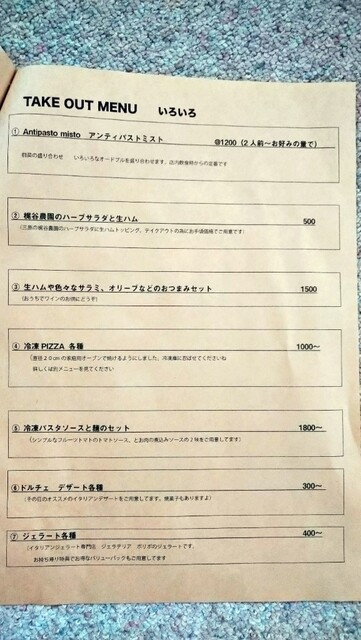 TAKE OUT MENU いろいろ
① Antipasto misto アンティパストミスト @1200（2人前〜お好みの量で）
前菜の盛り合わせ いろいろなオードブルを盛り合わせます。店内飲食時からの定番です
② 梶谷農園のハーブサラダと生ハム 500
（三原の梶谷農園のハーブサラダに生ハムトッピング。テイクアウトの為にお手頃価格でご用意です）
③ 生ハムや色々なサラミ、オリーブなどのおつまみセット 1500
（おうちでワインのお供にどうぞ）
④ 冷凍 PIZZA 各種 1000〜
（直径20cmの家庭用オーブンで焼けるようにしました。冷凍庫に忍ばせてくださいね
詳しくは別メニューを見てください
⑤ 冷凍パスタソースと麺のセット 1800〜
（シンプルなフルーツトマトのトマトソース、とお肉の煮込みソースの2味をご用意してます）
⑥ドルチェ デザート各種 300〜
（その日のオススメのイタリアンデザートをご用意してます。焼菓子もありますよ）
⑦ ジェラート各種 400〜
（イタリアンジェラート専門店 ジェラテリア ポリポのジェラートです。
お持ち帰り特典でお得なバリューパックもご用意してます